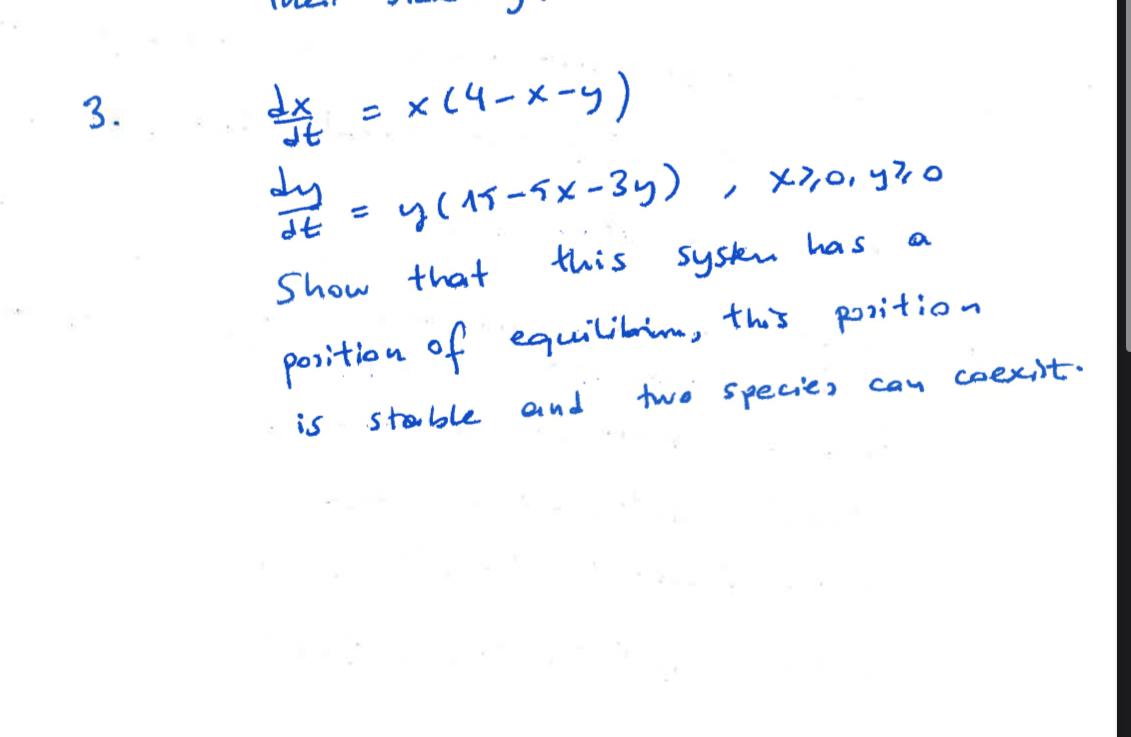 3. dx/dt = x(4-x-y)
dy/dt = y(15-5x-3y) , x≥0, y≥0
Show that this system has a
position of equilibrium, this position
is stable and two species can coexist.